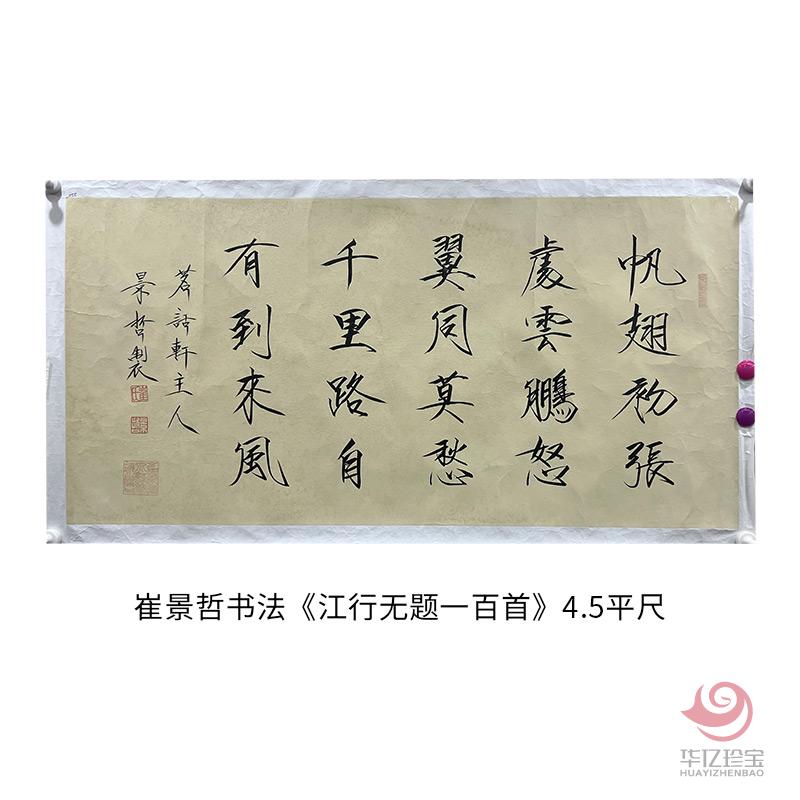 帆翅初張
處雲鵬怒
翼同莫愁
千里路自
有到來風
茗話軒主人
景哲製
崔景哲书法《江行无题一百首》4.5平尺
华亿珍宝
HUAYIZHENBAO